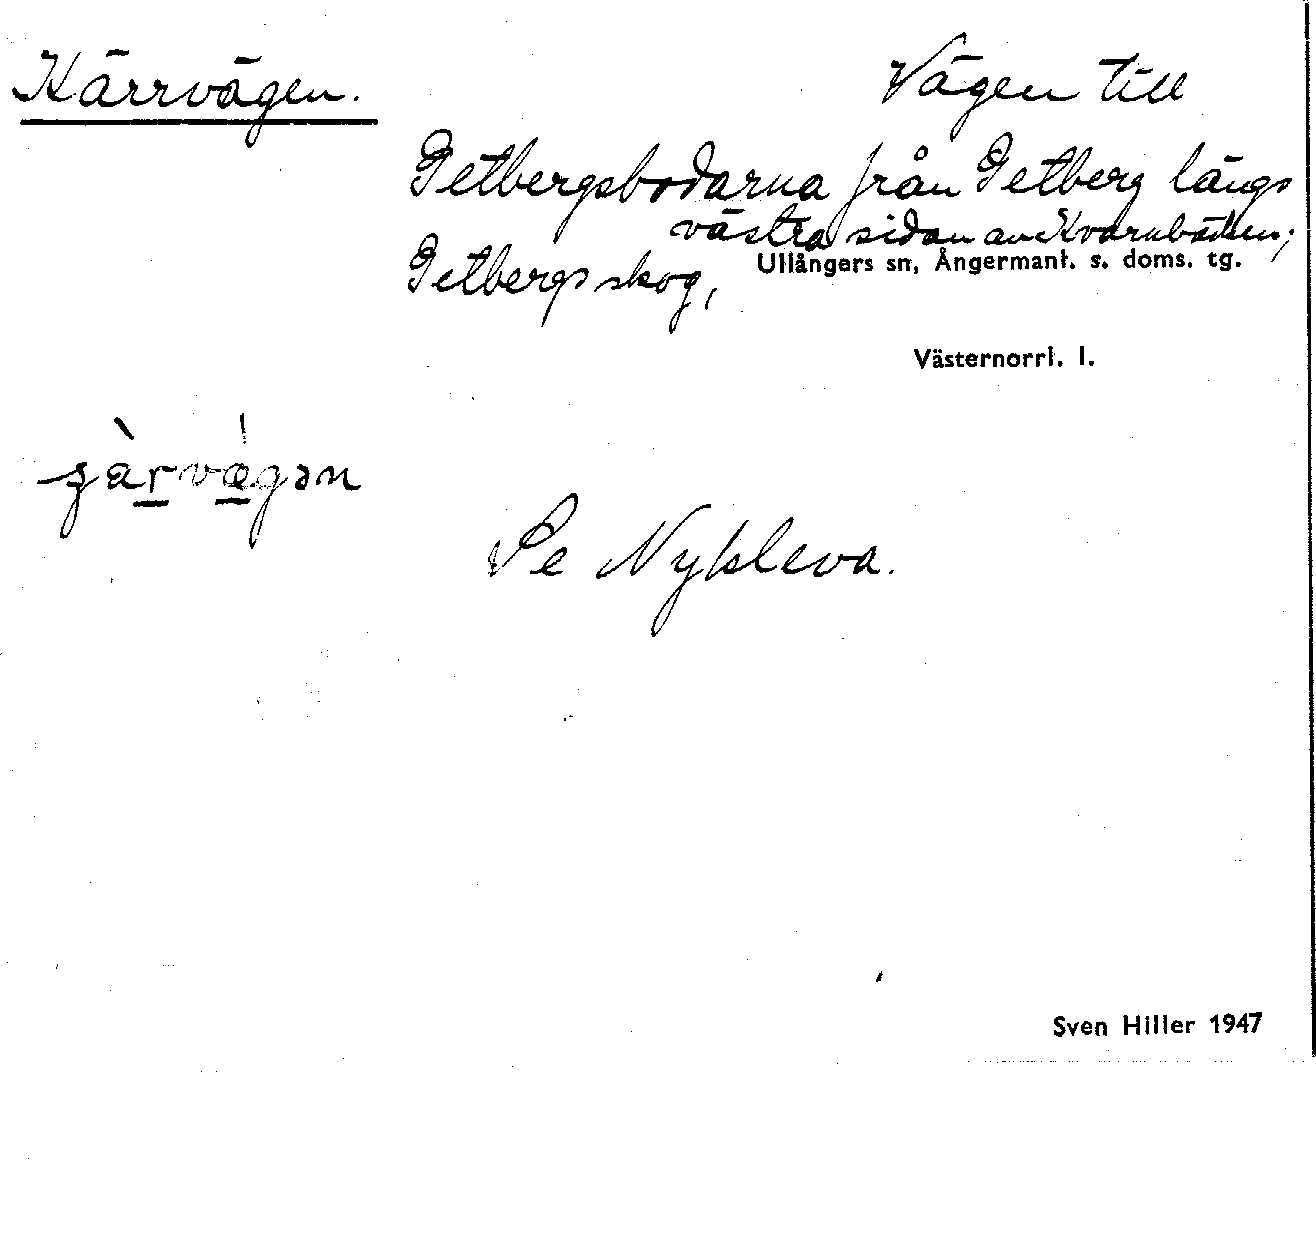 Kärrvägen.
Vägen till
Getbergsbodarna från Getberg längs
västra sidan av Kvarnbäcken;
Getbergs skog,
Ullångers sn, Ångermanl. s. doms. tg.
Västernorrl. l.
Se Nykleva.
Sven Hiller 1947